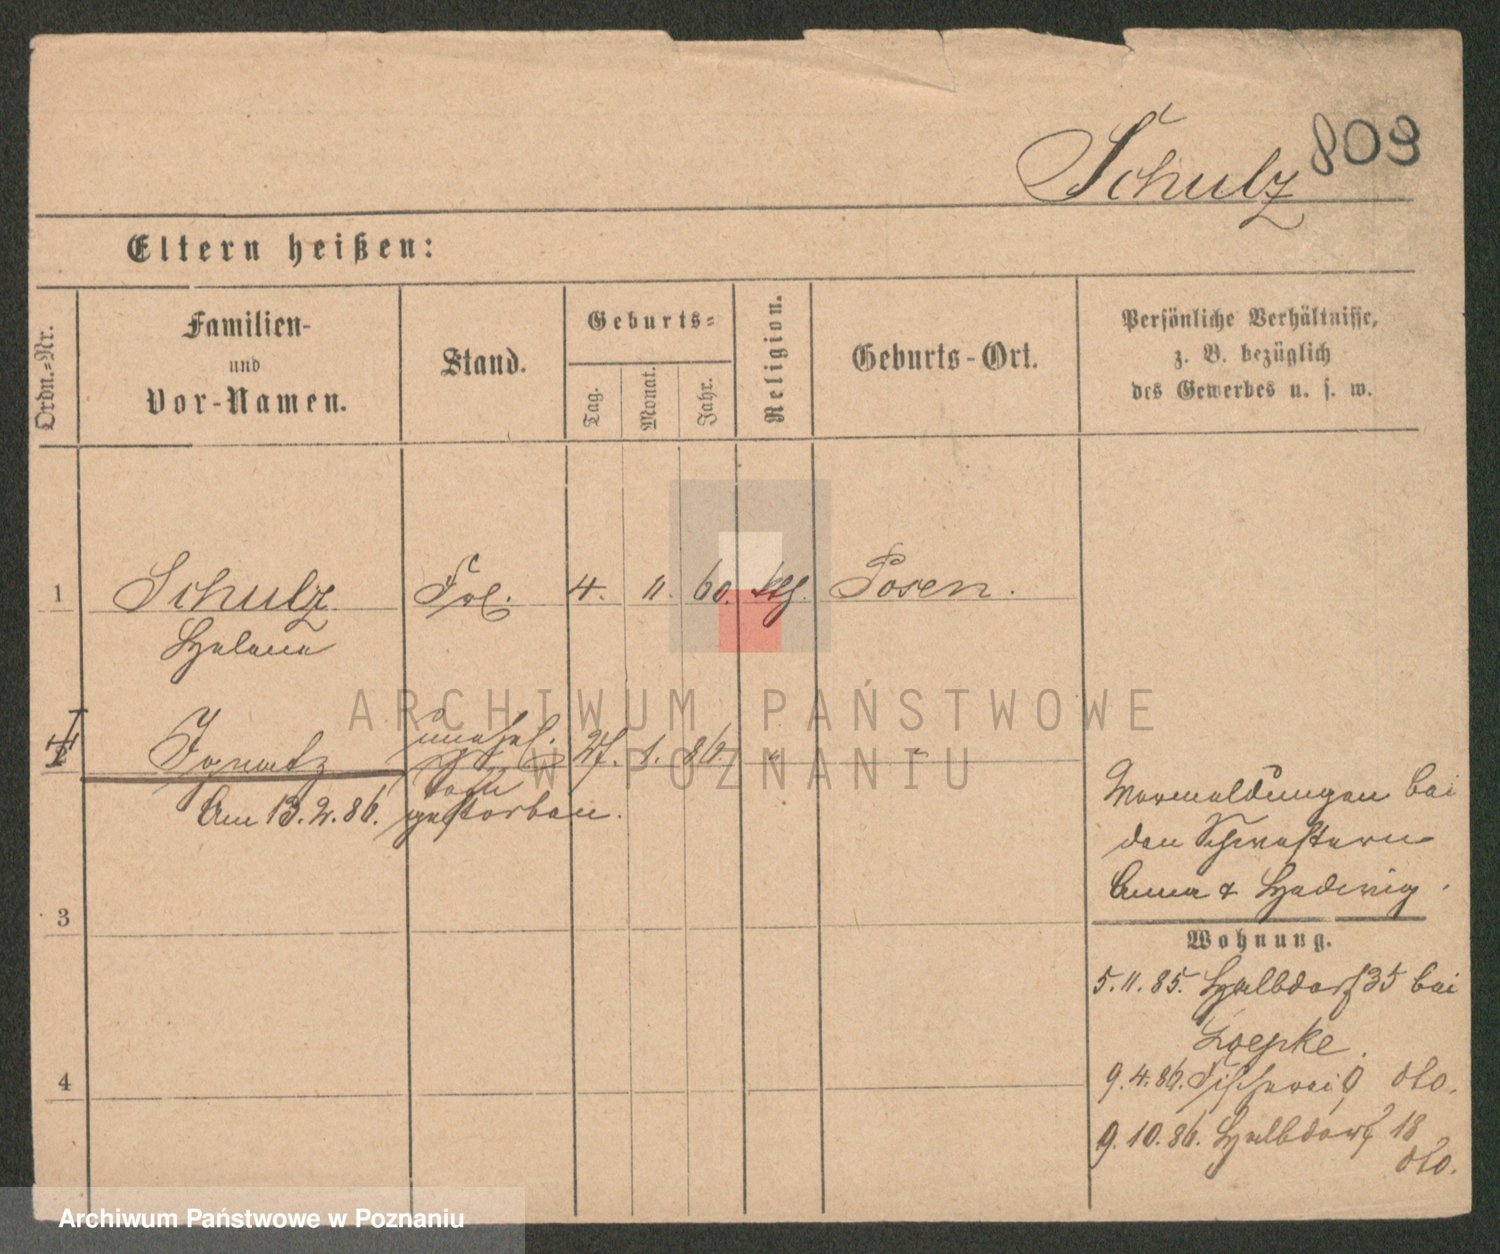 Schulz 809
Eltern heißen:
Ordn.-Nr.
Familien-
und
Vor-Namen.
Stand.
Geburts-
Tag.
Monat.
Jahr.
Religion.
Geburts-Ort.
Persönliche Verhältnisse,
z. B. bezüglich
des Gewerbes u. s. w.
1 Schulz Frl. 4. 11. 60. kth. Posen.
Helene
Ignatz unehel. 27. 1. 86. " "
Sohn
Am 13.2.86. gestorben.
3
4
Vormeldungen bei
den Schwestern
Anna & Hedwig.
Wohnung.
5.11.85. Halbdorf 35 bei
Loepke.
9.4.86. Fischerei 9 dto.
9.10.86. Halbdorf 18
dto.
ARCHIWUM PAŃSTWOWE
W POZNANIU
Archiwum Państwowe w Poznaniu